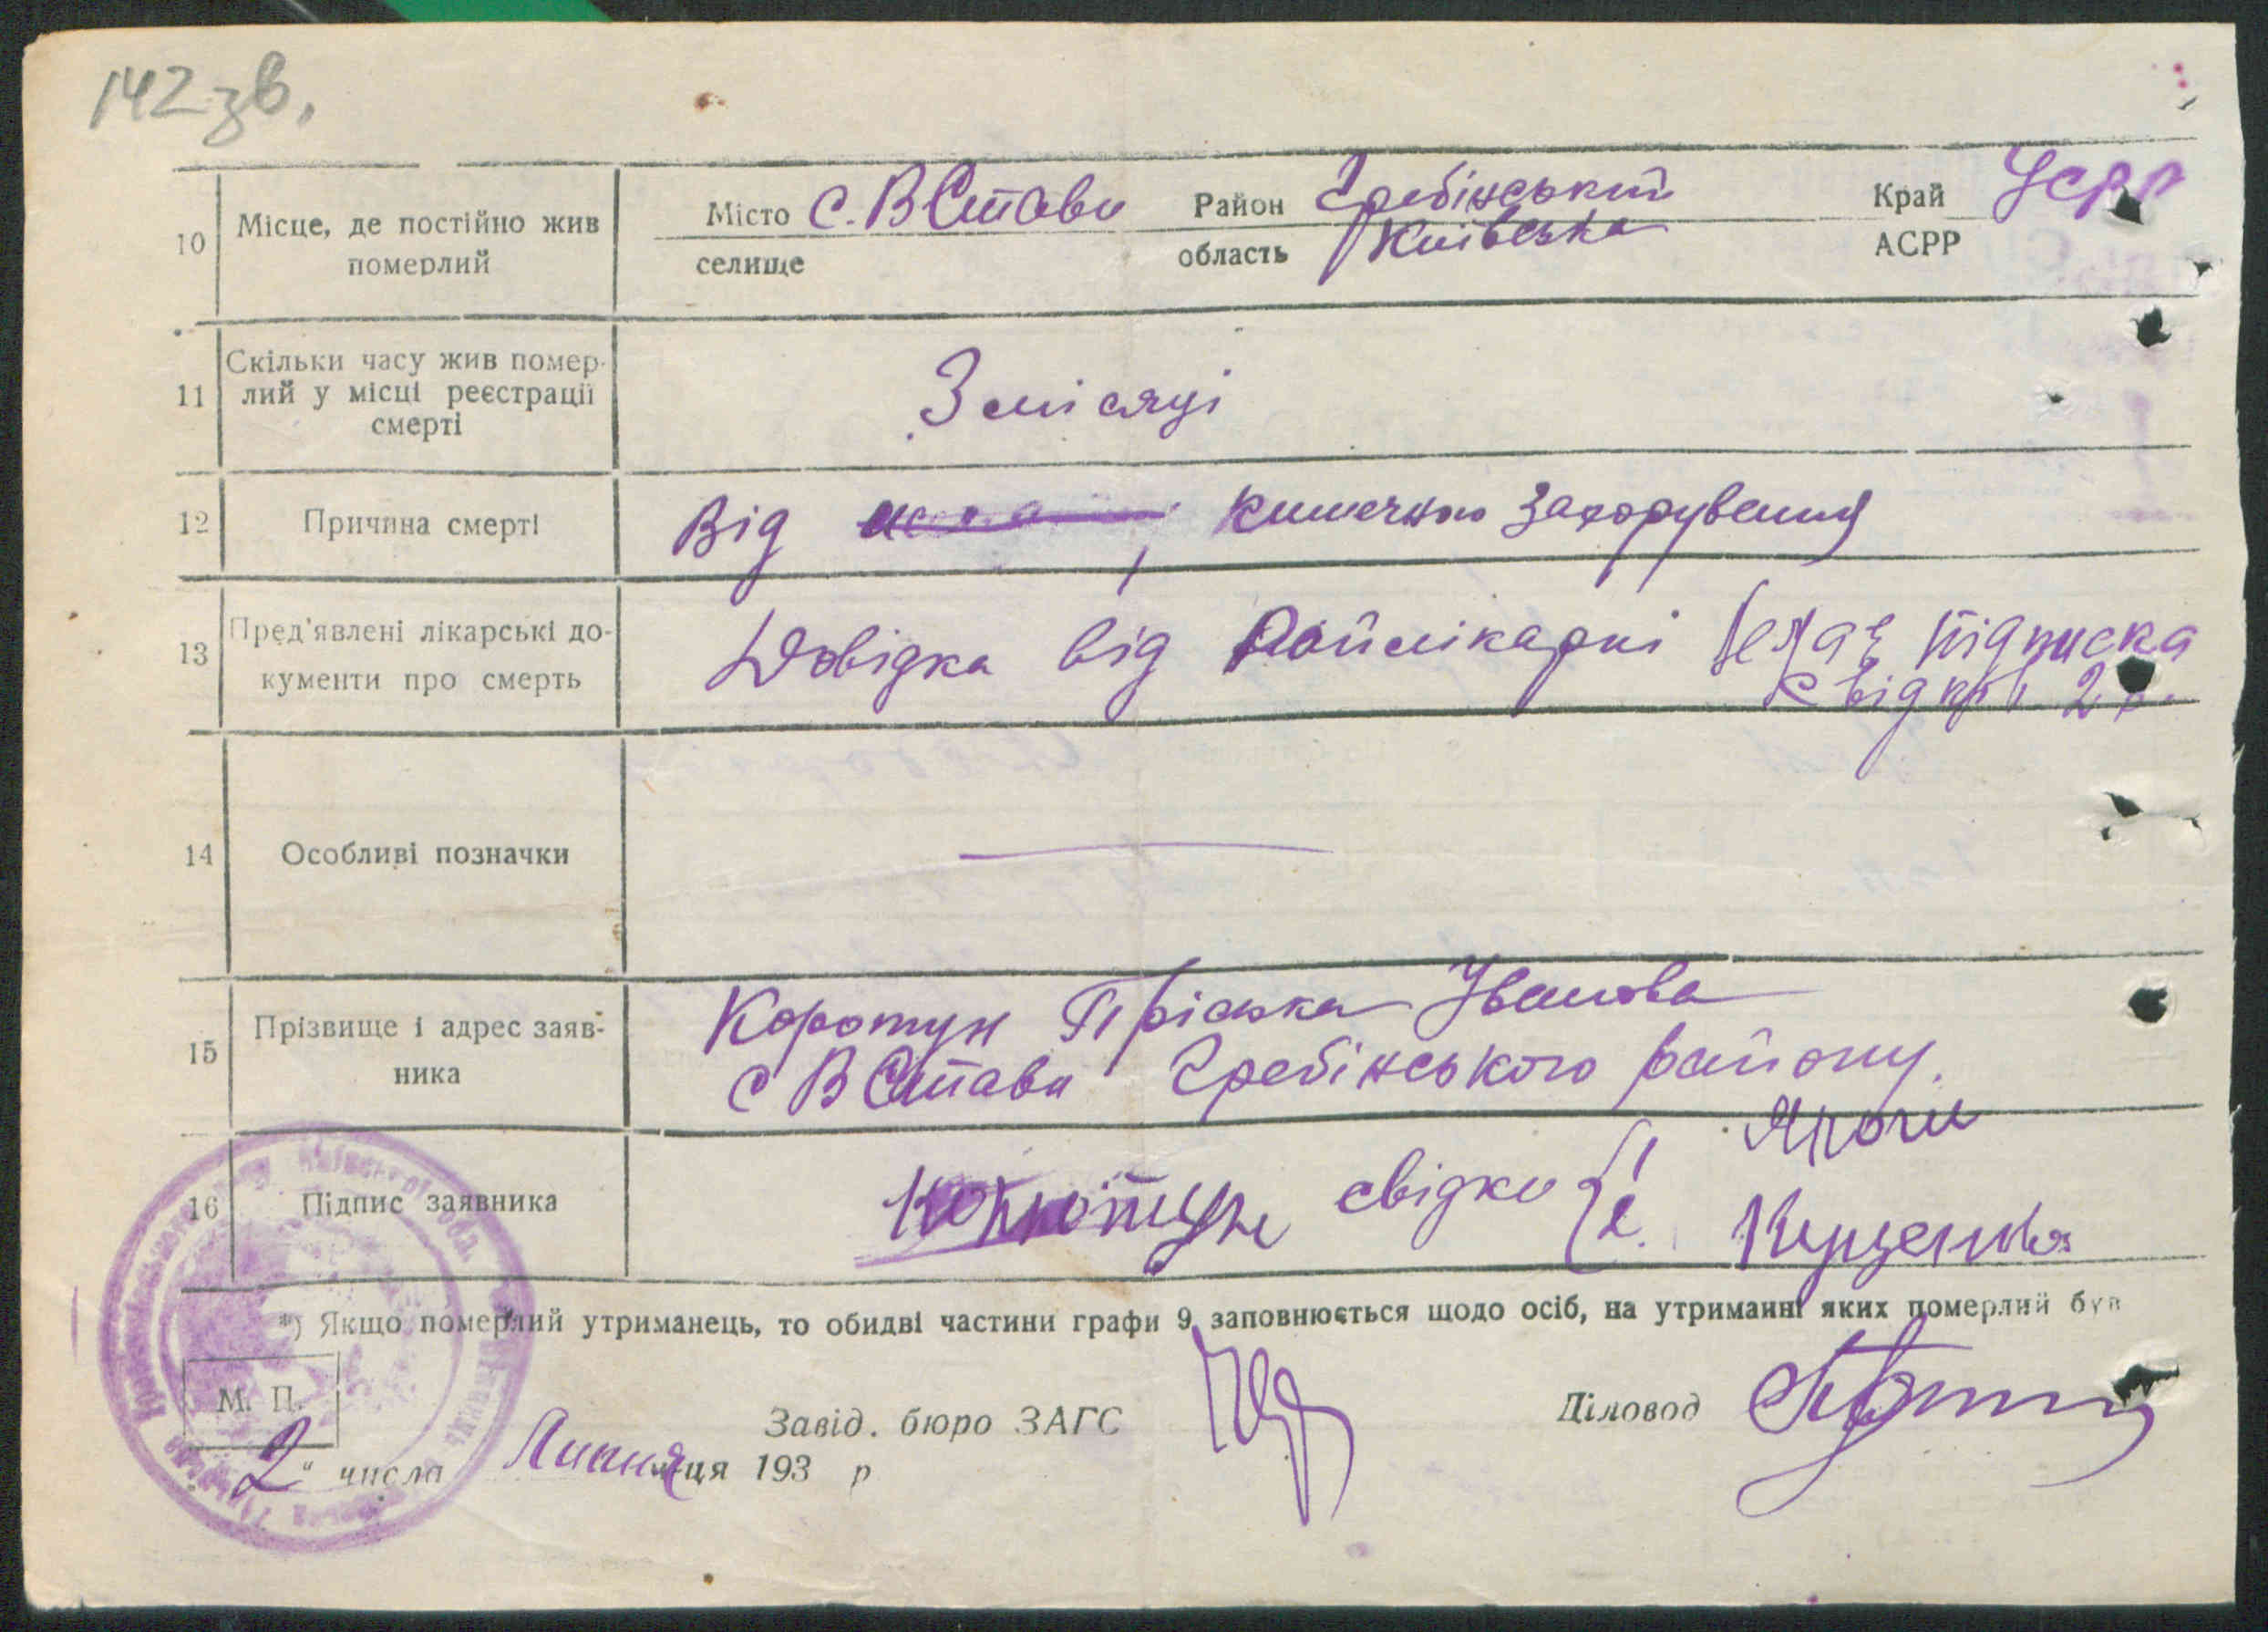 142 зв.
10 Місце, де постійно жив померлий
Місто с. В Стави Район Гребінський Край УСРР
селище область Київська АСРР
11 Скільки часу жив помер-
лий у місці реєстрації
смерті
3 місяці
12 Причина смерті
Від кишечного захорування
13 Пред'явлені лікарські до-
кументи про смерть
Довідка від Райлікарні підписка
свідків 2
14 Особливі позначки
15 Прізвище і адрес заяв-
ника
Коротун Пріська Іванова
с В Стави Гребінського району.
16 Підпис заявника
Коротун свідки 1
2. Куценко
*) Якщо померлий утриманець, то обидві частини графи 9 заповнюється щодо осіб, на утриманні яких померлий був
М. П.
Завід. бюро ЗАГС Діловод
2" числа Липня м-ця 193 р